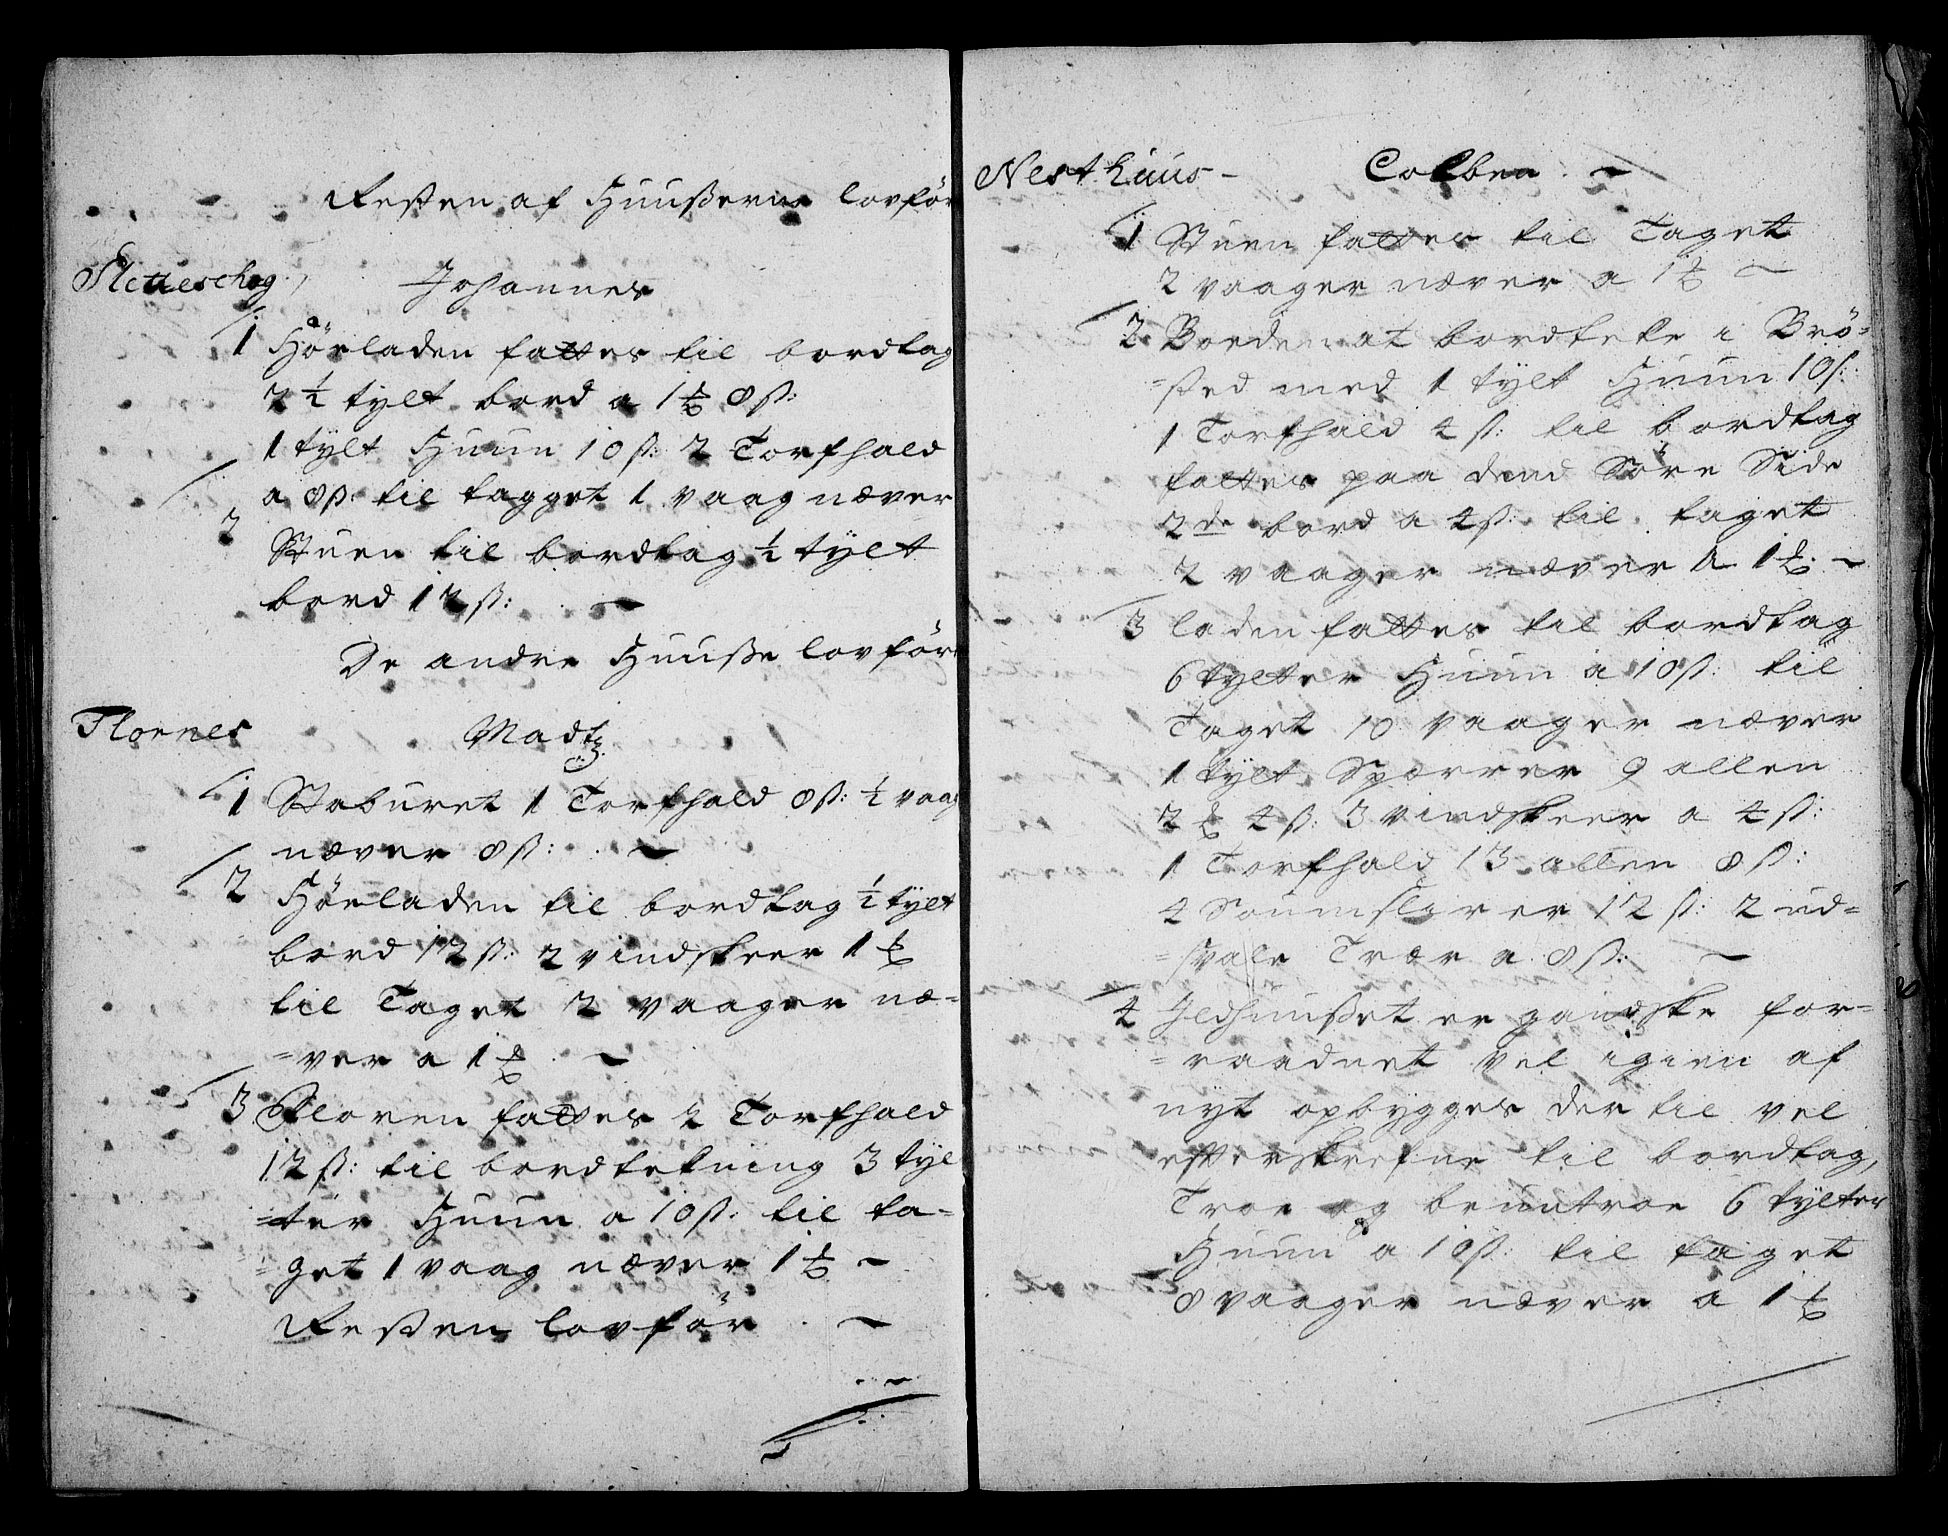 Resten af Huuserne lovför
Sletteschog, Johannes
1 Hörladen fattes til bordtag
2 ½ tylt bord a 1 ß 8 ß:
1 tylt Huun 10 ß: 2 Torfhald
a 8 ß: til tagget 1 vaag næver
2 Stuen til bordtag ½ tylt
bord 12 ß:
De andre Huuse lovför
Flornes Madtz
1 Staburet 1 Torfhald 8 ß: ½ vaag
næver 8 ß:
2 Hörladen til bordtag ½ tylt
bord 12 ß: 2 vindskeer 1
til Taget 2 vaager næ=
=ver a 1
3 Floren fattes 2 Torfhald
12 ß: til bordtekning 3 tyl
=ter Huun a 10 ß: til ta=
=get 1 vaag næver 1
Resten lovför
Nesthuus - Colben
1 Stuen fattes til Taget
2 vaager næver a 1
2 Boeden at bordteke i Brö=
=sted med 1 tylt Huun 10 ß:
1 Torfhald 4 ß: til bordtag
fattes paa dend Söre Side
2de bord a 4 ß: til taget
2 vaager næver a 1
3 laden fattes til bordtag
6 tylter Huun a 10 ß: til
Taget 10 vaager næver
1 tylt Spærrer 9 allen
2 4 ß: 3 vindskeer a 4 ß:
1 Torfhald 13 allen 8 ß:
4 12 ß: 2 ud=
=svale Trær a 8 ß:
4 Ildhuuset er gandske for=
=raadnet vel igien af
nyt opbygges der til vel
efterskrefne til bordtag,
Troe og beuntroe 6 tylter
Huun a 10 ß: til taget
8 vaager næver a 1